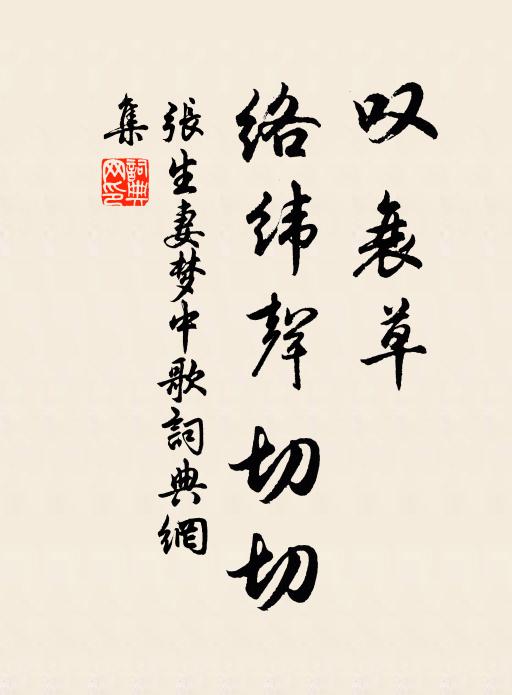 叹衰草
络纬聲切切
張生妻梦中歌詞典網
集
詞典
网印